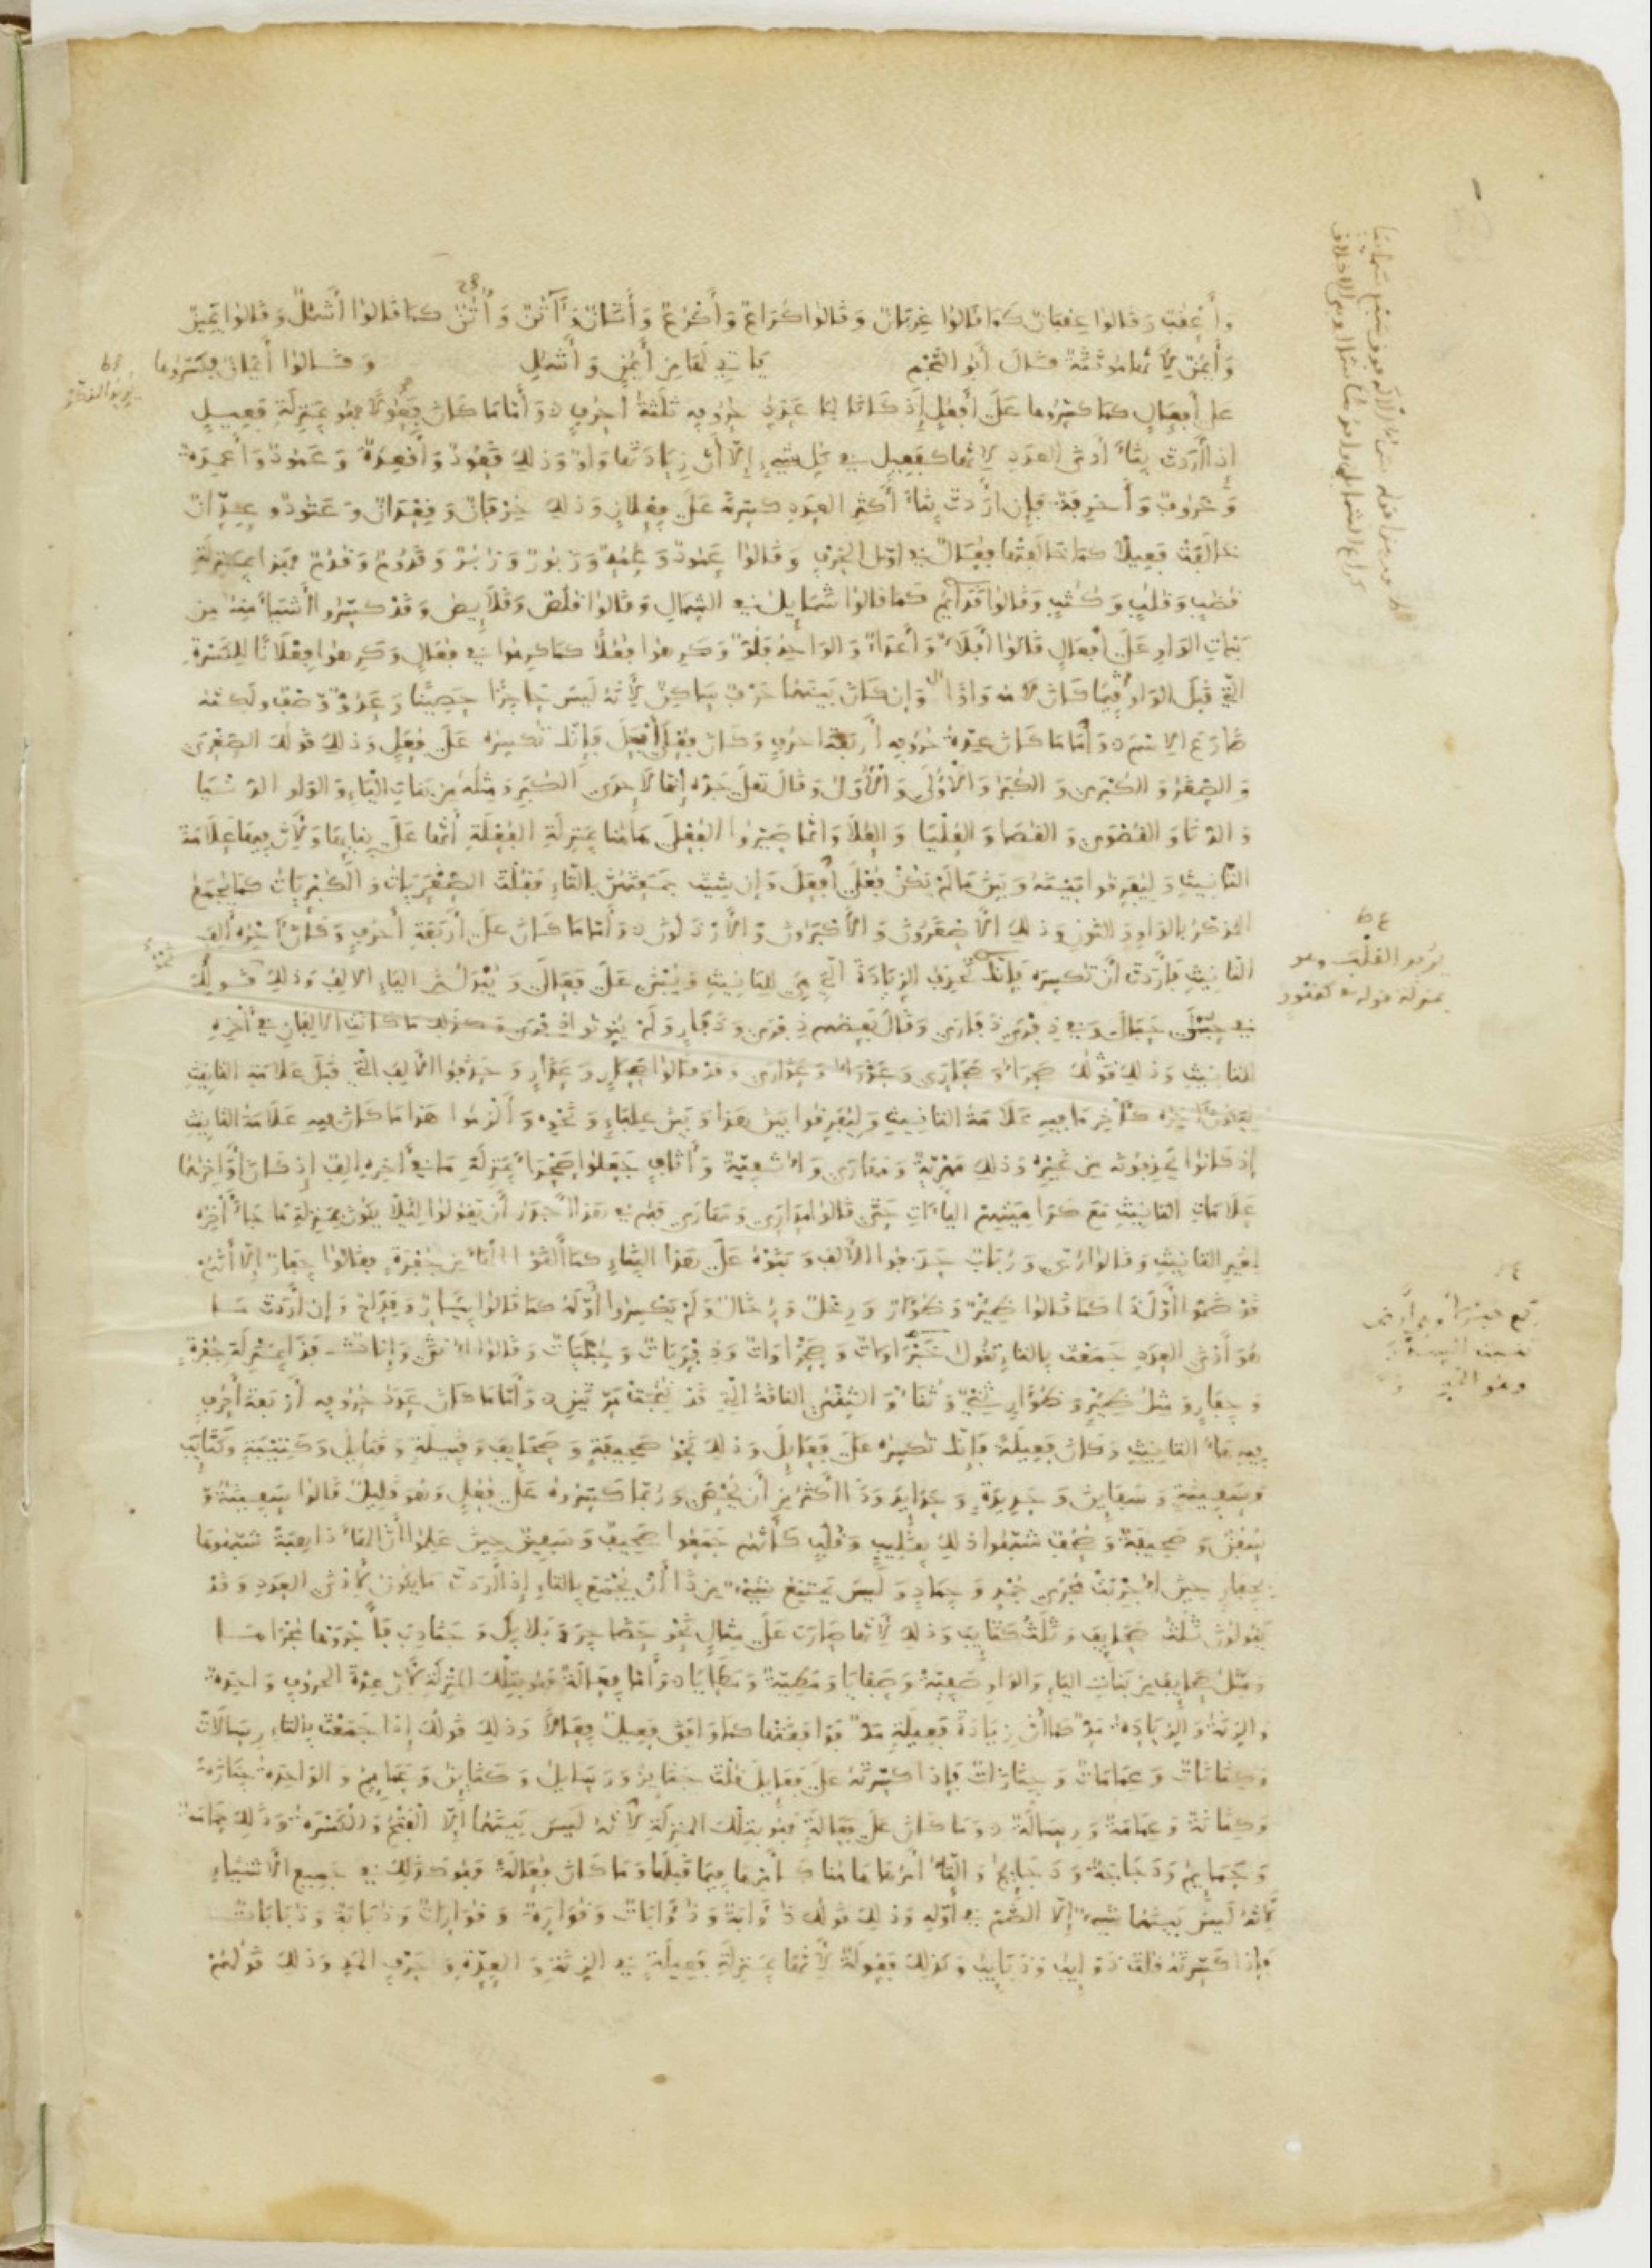 وَأَعْقُبٌ وَقَالُوا عِقْبَانٌ كَمَا قَالُوا غِرْبَانٌ وَقَالُوا كُرَاعٌ وَأَكْرُعٌ وَأَتَانٌ وَآتُنٌ وَأُتُنٌ كَمَا قَالُوا أَشْمُلٌ وَقَالُوا يَمِينٌ
وَأَيْمُنٌ لِأَنَّهَا مُؤَنَّثَةٌ قَالَ أَبُو النَّجْمِ يَأْتِي لَهَا مِنْ أَيْمُنٍ وَأَشْمُلِ وَقَالُوا أَيْمَانٌ فَكَسَّرُوهَا
على أَفْعَالٍ كَمَا كَسَّرُوهَا عَلَى أَفْعُلٍ إِذْ كَانَا لِمَا عَدَدُ حُرُوفِهِ ثَلَثَةُ أَحْرُفٍ وَأَمَّا مَا كَانَ فَعُولًا فَهُوَ بِمَنْزِلَةِ فَعِيلٍ
إِذَا أَرَدْتَ بِنَاءَ أَدْنَى العَدَدِ لِأَنَّهَا كَفَعِيلٍ فِي كُلِّ شَيْءٍ إِلَّا أَنَّ زِيَادَتَهَا وَاوٌ وَذَلِكَ قَعُودٌ وَأَقْعِدَةٌ وَعَمُودٌ وَأَعْمِدَةٌ
وَخَرُوفٌ وَأَخْرِفَةٌ فَإِنْ أَرَدْتَ بِنَاءَ أَكْثَرِ العَدَدِ كَسَّرْتَهُ عَلَى فِعْلَانٍ وَذَلِكَ خِرْفَانٌ وَقِعْدَانٌ وَعَتُودٌ وَعِدَّانٌ
خَالَفَتْ فَعِيلًا كَمَا خَالَفَتْهَا فُعَالٌ فِي أَوَّلِ الحَرْفِ وَقَالُوا عَمُودٌ وَعُمُدٌ وَزَبُورٌ وَزُبُرٌ وَقَدُومٌ وَقُدُمٌ فَهَذَا بِمَنْزِلَةِ
قُضُبٍ وَقُلُبٍ وَكُثُبٍ وَقَالُوا قَدَائِمُ كَمَا قَالُوا شَمَائِلُ فِي الشِّمَالِ وَقَالُوا قُلُصٌ وَقَلَائِصُ وَقَدْ كَسَّرُوا أَشْيَاءَ مِنْهُ مِنْ
بَنَاتِ الوَاوِ عَلَى أَفْعَالٍ قَالُوا أَفْلَاءٌ وَأَعْدَاءٌ وَالوَاحِدُ فَلُوٌّ وَكَرِهُوا فُعُلًا كَمَا كَرِهُوا فِي فُعَالٍ وَكَرِهُوا فِعْلَانًا لِلْكَسْرَةِ
الَّتِي قَبْلَ الوَاوِ وَإِنْ كَانَ بَيْنَهُمَا حَرْفٌ سَاكِنٌ لِأَنَّهُ لَيْسَ حَاجِزًا حَصِينًا وَعَدُوٌّ وَصْفٌ وَلَكِنَّهُ
ضَارَعَ الاسْمَ وَأَمَّا مَا كَانَ عِدَّةُ حُرُوفِهِ أَرْبَعَةَ أَحْرُفٍ وَكَانَ فُعْلَى أَفْعَلَ فَإِنَّكَ تُكَسِّرُهُ عَلَى فُعَلٍ وَذَلِكَ قَوْلُكَ الصُّغْرَى
وَالصُّغَرُ وَالكُبْرَى وَالكُبَرُ وَالأُولَى وَالأُوَلُ وَقَالَ تَعَلَى جَدُّهُ إِنَّهَا لَإِحْدَى الكُبَرِ وَمِثْلُهُ مِنْ بَنَاتِ اليَاءِ وَالوَاوِ الدُّنْيَا
وَالدُّنَا وَالقُصْوَى وَالقُصَا وَالعُلْيَا وَالعُلَا وَإِنَّمَا صَيَّرُوا الفُعْلَى هَاهُنَا بِمَنْزِلَةِ الفُعْلَةِ لِأَنَّهَا عَلَى بِنَائِهَا وَلِأَنَّ فِيهَا عَلَامَةَ
التَّأْنِيثِ وَلِيُفَرِّقُوا بَيْنَهَا وَبَيْنَ مَا لَمْ يَكُنْ فُعْلَى أَفْعَلَ وَإِنْ شِئْتَ جَمَعْتَهُنَّ بِالتَّاءِ فَقُلْتَ الصُّغْرَيَاتُ وَالكُبْرَيَاتُ كَمَا يُجْمَعُ
المُذَكَّرُ بِالوَاوِ وَالنُّونِ وَذَلِكَ الأَصْغَرُونَ وَالأَكْبَرُونَ وَالأَرْذَلُونَ وَأَمَّا مَا كَانَ عَلَى أَرْبَعَةِ أَحْرُفٍ وَكَانَ آخِرَهُ أَلِفُ
التَّأْنِيثِ فَأَرَدْتَ أَنْ تُكَسِّرَهُ فَإِنَّكَ تَحْذِفُ الزِّيَادَةَ الَّتِي هِيَ لِلتَّأْنِيثِ وَيُبْنَى عَلَى فَعَالَى وَيُبْدَلُ مِنَ اليَاءِ الألِفُ وَذَلِكَ قَوْلُكَ
فِي حُبْلَى حَبَالَى وَفِي ذِفْرَى ذَفَارَى وَقَالَ بَعْضُهُمْ ذِفْرَى وَذَفَارٍ وَلَمْ يُنَوِّنُوا ذِفْرَى وَكَذَلِكَ مَا كَانَتِ الألِفَانِ فِي آخِرِهِ
لِلتَّأْنِيثِ وَذَلِكَ قَوْلُكَ صَحْرَاءُ وَصَحَارَى وَعَذْرَاءُ وَعَذَارَى وَقَدْ قَالُوا صَحَارٍ وَعَذَارٍ وَحَذَفُوا الأَلِفَ الَّتِي قَبْلَ عَلَامَةِ التَّأْنِيثِ
لِيَكُونَ آخِرُهُ كَآخِرِ مَا فِيهِ عَلَامَةُ التَّأْنِيثِ وَلِيُفَرِّقُوا بَيْنَ هَذَا وَبَيْنَ عِلْبَاءٍ وَنَحْوِهِ وَأَلْزَمُوا هَذَا مَا كَانَ فِيهِ عَلَامَةُ التَّأْنِيثِ
إِذْ كَانُوا يَحْذِفُونَهُ مِنْ غَيْرِهِ وَذَلِكَ مَهْرِيَّةٌ وَمَهَارَى وَأُثْفِيَّةٌ وَأَثَافٍ جَعَلُوا صَحْرَاءَ بِمَنْزِلَةِ مَا فِي آخِرِهِ أَلِفٌ إِذْ كَانَ أَوَاخِرُهُمَا
عَلَامَاتِ التَّأْنِيثِ مَعَ كَرَاهِيَتِهِمِ اليَاءَاتِ حَتَّى قَالُوا مَدَارَى وَمَهَارَى فَهُمْ فِي هَذَا أَجْدَرُ أَنْ يَقُولُوا لِئَلَّا يَكُونَ بِمَنْزِلَةِ مَا جَاءَ آخِرُهُ
لِغَيْرِ التَّأْنِيثِ وَقَالُوا رُبَّى وَرُبَابٌ حَذَفُوا الأَلِفَ وَبَنَوْهُ عَلَى هَذَا البِنَاءِ كَمَا أَلْقَوُا الهَاءَ مِنْ جُفْرَةٍ فَقَالُوا جِفَارٌ إِلَّا أَنَّهُمْ
قَدْ ضَمُّوا أَوَّلَ ذَا كَمَا قَالُوا ظِئْرٌ وَظُؤَارٌ وَرِخْلٌ وَرُخَالٌ وَلَمْ يَكْسِرُوا أَوَّلَهُ كَمَا قَالُوا بِئَارٌ وَقِدَاحٌ وَإِنْ أَرَدْتَ مَا
هُوَ أَدْنَى العَدَدِ جَمَعْتَ بِالتَّاءِ تَقُولُ خَبْرَاوَاتٌ وَصَحْرَاوَاتٌ وَذِفْرَيَاتٌ وَحُبْلَيَاتٌ وَقَالُوا أُنْثَى وَإِنَاثٌ فَذَا بِمَنْزِلَةِ جُفْرَةٍ
وَجِفَارٍ وَمِثْلُ ظِئْرٍ وَظُؤَارٍ ثِنْيٌ وَثُنَاءٌ وَالثِّنْيُ النَّاقَةُ الَّتِي قَدْ نُتِجَتْ مَرَّتَيْنِ وَأَمَّا مَا كَانَ عَدَدُ حُرُوفِهِ أَرْبَعَةَ أَحْرُفٍ
فِيهِ هَاءُ التَّأْنِيثِ وَكَانَ فَعِيلَةً فَإِنَّكَ تُكَسِّرُهُ عَلَى فَعَائِلَ وَذَلِكَ نَحْوُ صَحِيفَةٍ وَصَحَائِفَ وَقَبِيلَةٍ وَقَبَائِلَ وَكَتِيبَةٍ وَكَتَائِبَ
وَسَفِينَةٍ وَسَفَائِنَ وَحَدِيدَةٍ وَحَدَائِدَ وَذَا أَكْثَرُ مِنْ أَنْ يُحْصَى وَرُبَّمَا كَسَّرُوهُ عَلَى فُعُلٍ وَهُوَ قَلِيلٌ قَالُوا سَفِينَةٌ وَ
سُفُنٌ وَصَحِيفَةٌ وَصُحُفٌ شَبَّهُوا ذَلِكَ بِقَلِيبٍ وَقُلُبٍ كَأَنَّهُمْ جَمَعُوا صَحِيفٌ وَسَفِينٌ حِينَ عَلِمُوا أَنَّ الهَاءَ ذَاهِبَةٌ شَبَّهُوهَا
بِجِفَارٍ حِينَ أُجْرِيَتْ مُجْرَى جُمْدٍ وَجِمَادٍ وَلَيْسَ يَمْتَنِعُ شَيْءٌ مِنْ ذَا أَنْ يُجْمَعَ بِالتَّاءِ إِذَا أَرَدْتَ مَا يَكُونُ لِأَدْنَى العَدَدِ وَقَدْ
يَقُولُونَ ثَلَثُ صَحَائِفَ وَثَلَثُ كَتَائِبَ وَذَلِكَ لِأَنَّهَا صَارَتْ عَلَى مِثَالٍ نَحْوِ حَضَاجِرَ وَبَلَابِلَ وَجَنَادِبَ فَأَجْرَوْهَا مُجْرَاهَا
وَمِثْلُ صَحَائِفَ مِنْ بَنَاتِ اليَاءِ وَالوَاوِ صَفِيَّةٌ وَصَفَايَا وَمَطِيَّةٌ وَمَطَايَا وَأَمَّا فِعَالَةٌ فَهُوَ بِتِلْكَ المَنْزِلَةِ لِأَنَّ عِدَّةَ الحُرُوفِ وَاحِدَةٌ
وَالزِّنَةُ وَالزِّيَادَةُ مَدٌّ كَمَا أَنَّ زِيَادَةَ فَعِيلَةٍ مَدٌّ فَوَافَقَتْهَا كَمَا وَافَقَ فَعِيلٌ فِعَالًا وَذَلِكَ قَوْلُكَ إِذَا جَمَعْتَ بِالتَّاءِ رِسَالَاتٌ
وَكِنَانَاتٌ وَعِمَامَاتٌ وَجِنَازَاتٌ فَإِذَا كَسَّرْتَهُ عَلَى فَعَائِلَ قُلْتَ جَنَائِزُ وَرَسَائِلُ وَكَنَائِنُ وَعَمَائِمُ وَالوَاحِدَةُ جِنَازَةٌ
وَكِنَانَةٌ وَعِمَامَةٌ وَرِسَالَةٌ وَمَا كَانَ عَلَى فَعَالَةٍ فَهُوَ بِتِلْكَ المَنْزِلَةِ لِأَنَّهُ لَيْسَ بَيْنَهُمَا إِلَّا الفَتْحُ وَالكَسْرَةُ وَذَلِكَ حَمَامَةٌ
وَحَمَائِمُ وَدَجَاجَةٌ وَدَجَائِجُ وَالتَّاءُ أَمْرُهَا هَاهُنَا كَأَمْرِهَا فِيمَا قَبْلَهَا وَمَا كَانَ فُعَالَةً فَهُوَ كَذَلِكَ فِي جَمِيعِ الأَشْيَاءِ
لِأَنَّهُ لَيْسَ بَيْنَهُمَا شَيْءٌ إِلَّا الضَّمُّ فِي أَوَّلِهِ وَذَلِكَ قَوْلُكَ ذُؤَابَةٌ وَذُؤَابَاتٌ وَقُوَارَةٌ وَقُوَارَاتٌ وَذُبَابَةٌ وَذُبَابَاتٌ
فَإِذَا كَسَّرْتَهُ قُلْتَ ذَوَائِبُ وَذَبَائِبُ وَكَذَلِكَ فَعُولَةٌ لِأَنَّهَا بِمَنْزِلَةِ فَعِيلَةٍ فِي الزِّنَةِ وَالعِدَّةِ وَحَرْفِ المَدِّ وَذَلِكَ قَوْلُهُمْ